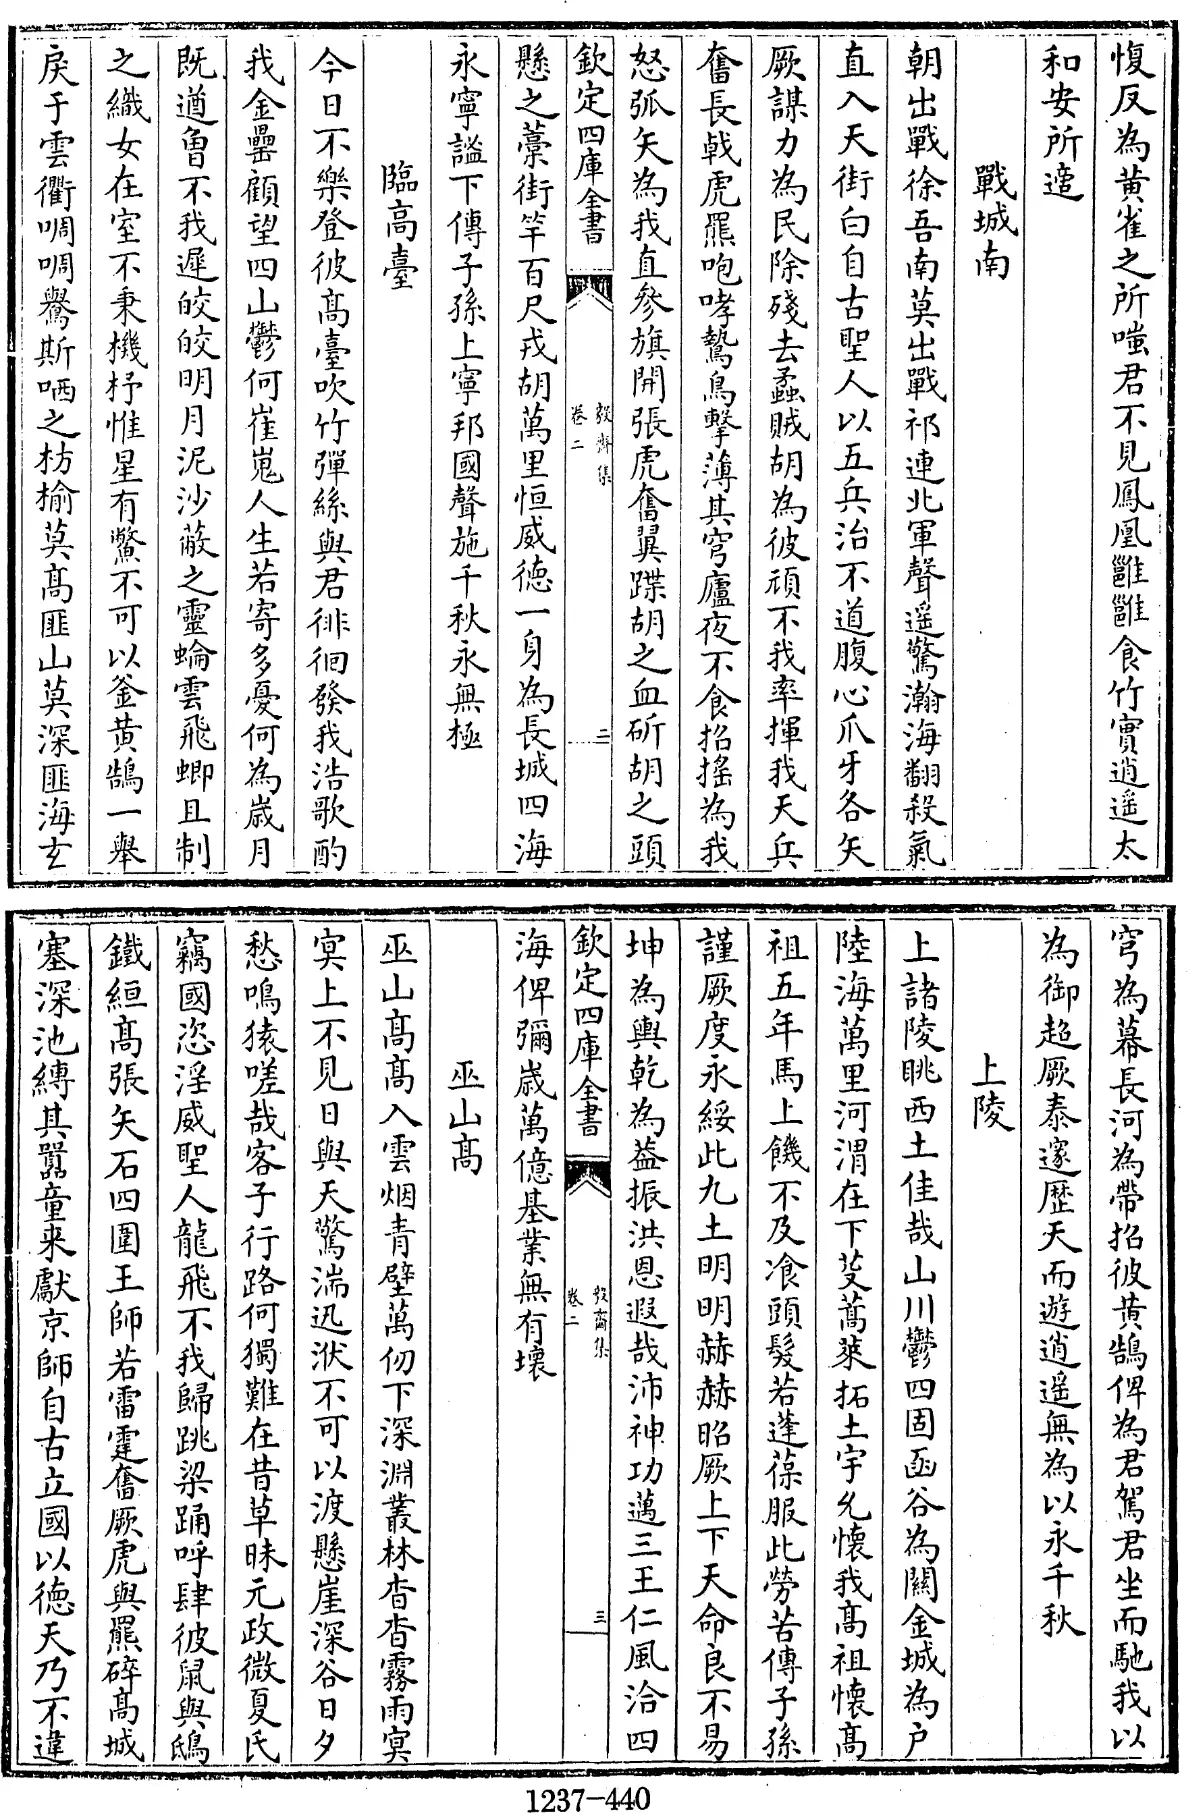 愎反為黄雀之所嗤君不見鳳凰雝雝食竹實逍遥太
和安所適
戰城南
朝出戰徐吾南莫出戰祁連北軍聲遥驚瀚海翻殺氣
直入天街白自古聖人以五兵治不道腹心爪牙各矢
厥謀力為民除殘去蟊賊胡為彼頑不我率揮我天兵
奮長戟虎羆咆哮鷙鳥擊薄其穹廬夜不食招搖為我
怒弧矢為我直參旗開張虎奮翼蹀胡之血斫胡之頭
欽定四庫全書
毅齋集
卷二
二
懸之藁街竿百尺戎胡萬里恒威德一身為長城四海
永寧謐下傳子孫上寧邦國聲施千秋永無極
臨高臺
今日不樂登彼髙臺吹竹彈絲與君徘徊發我浩歌酌
我金罍顧望四山鬱何崔嵬人生若寄多憂何為歲月
既遒曽不我遲皎皎明月泥沙蔽之靈蜦雲飛螂且制
之織女在室不秉機杼惟星有鱉不可以釜黄鵠一舉
戾于雲衢啁啁鷽斯哂之枋榆莫髙匪山莫深匪海玄
穹為幕長河為帶招彼黄鵠俾為君駕君坐而馳我以
為御超厥泰邃歴天而遊逍遥無為以永千秋
上陵
上諸陵眺西土佳哉山川鬱四固函谷為關金城為户
陸海萬里河渭在下芟蒿萊拓土宇允懷我髙祖懷髙
祖五年馬上饑不及飡頭髮若蓬葆服此勞苦傳子孫
謹厥度永綏此九土明明赫赫昭厥上下天命良不易
坤為輿乾為葢振洪恩遐哉沛神功邁三王仁風洽四
欽定四庫全書
毅齋集
卷二
三
海俾彌歳萬億基業無有壞
巫山髙
巫山髙髙入雲烟青壁萬仞下深淵叢林杳杳霧雨冥
冥上不見日與天驚湍迅洑不可以渡懸崖深谷日夕
愁鳴猿嗟哉客子行路何獨難在昔草昧元政微夏氏
竊國恣淫威聖人龍飛不我歸跳梁踊呼肆彼鼠與鴟
鐵絙髙張矢石四圍王師若雷霆奮厥虎與羆碎髙城
塞深池縛其嚚童来獻京師自古立國以德天乃不違
1237-440